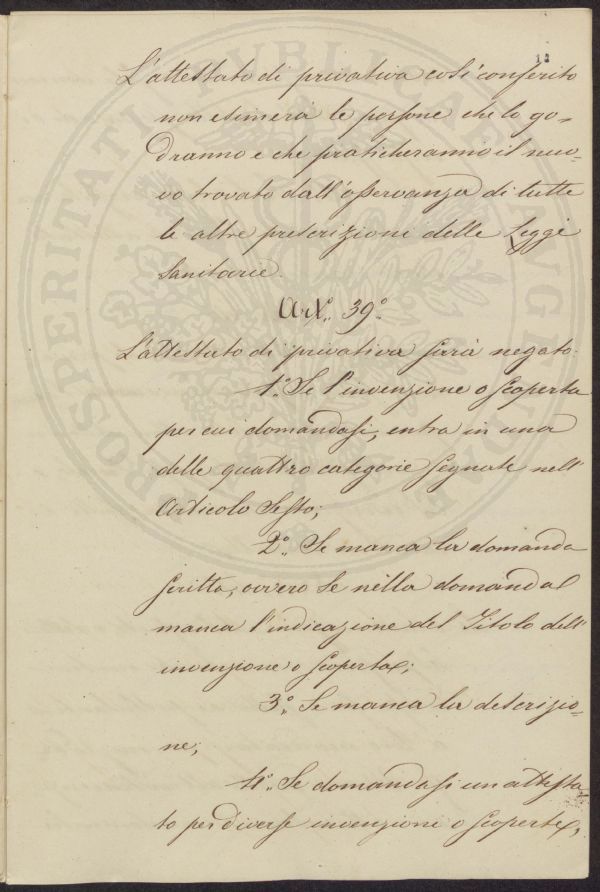 12
L'attestato di privativa così conferito
non esimerà le persone che lo go-
dranno e che praticheranno il nuo-
vo trovato dall'osservanza di tutte
le altre prescrizioni delle Leggi
Sanitarie.
Art.° 39.°
L'attestato di privativa sarà negato.
1.° Se l'invenzione o scoperta
per cui domandasi, entra in una
delle quattro categorie segnate nell'
Articolo Sesto;
2.° Se manca la domanda
scritta, ovvero se nella domanda
manca l'indicazione del Titolo dell'
invenzione o scoperta;
3.° Se manca la descrizio-
ne;
4.° Se domandasi un attesta-
to per diverse invenzioni o scoperte,
PROSPERITATI PUBLICAE AUGENDAE